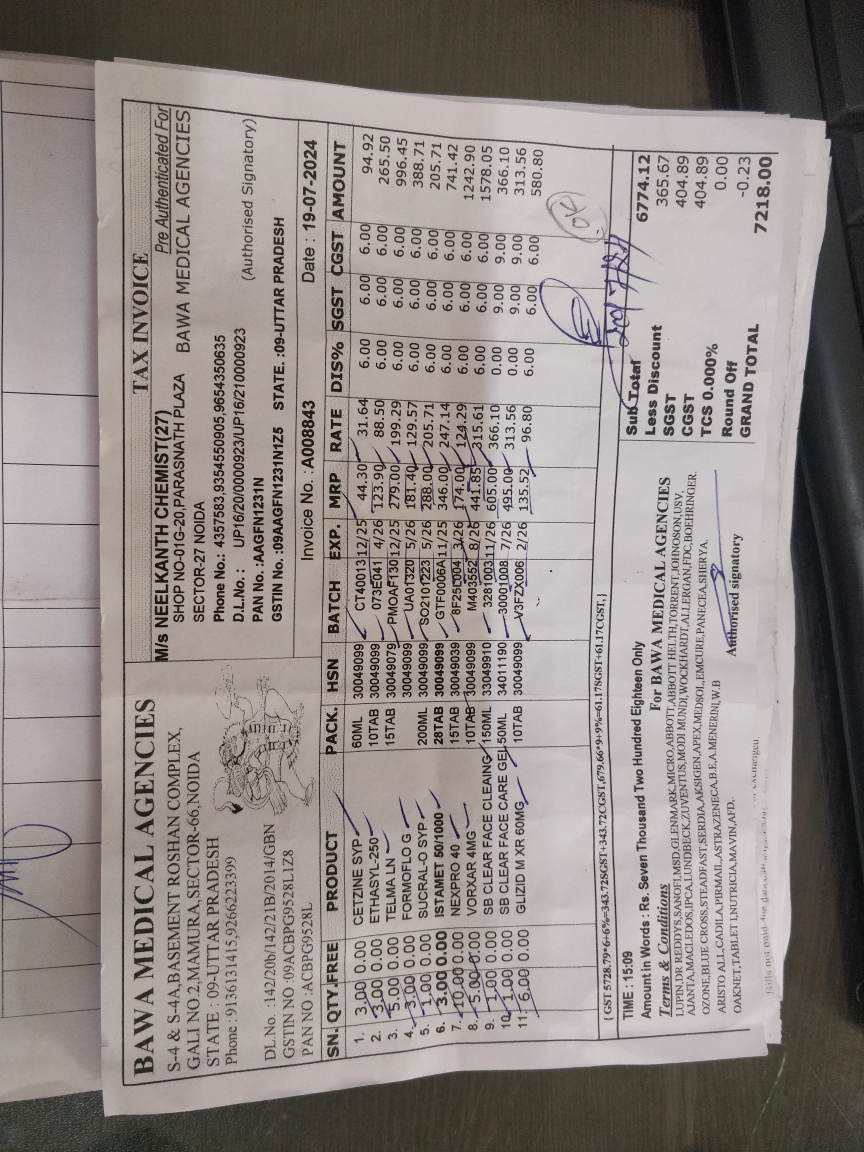 BAWA MEDICAL AGENCIES
S-4 & S-4A,BASEMENT ROSHAN COMPLEX,
GALI NO.2,MAMURA,SECTOR-66,NOIDA
STATE : 09-UTTAR PRADESH
Phone :9136131415,9266223399
DL.No. :142/20b/142/21B/2014/GBN
GSTIN NO :09ACBPG9528L1Z8
PAN NO :ACBPG9528L
TAX INVOICE
M/s NEELKANTH CHEMIST(27)
Pre Authenticated For
SHOP NO-01G-20,PARASNATH PLAZA
BAWA MEDICAL AGENCIES
SECTOR-27 NOIDA
Phone No.: 4357583,9354550905,9654350635
D.L.No.: UP16/20/0000923/UP16/210000923
(Authorised Signatory)
PAN No.:AAGFN1231N
GSTIN No.:09AAGFN1231N1Z5 STATE. :09-UTTAR PRADESH
Invoice No. :A008843 Date : 19-07-2024
SN. QTY. FREE PRODUCT PACK. HSN BATCH EXP. MRP RATE DIS% SGST CGST AMOUNT
1. 3.00 0.00 CETZINE SYP 60ML 30049099 CT40013 12/25 44.30 31.64 6.00 6.00 6.00 94.92
2. 3.00 0.00 ETHASYL-250 10TAB 30049099 073E041 4/26 123.90 88.50 6.00 6.00 6.00 265.50
3. 5.00 0.00 TELMA LN 15TAB 30049079 PMOAF130 12/25 279.00 199.29 6.00 6.00 6.00 996.45
4. 3.00 0.00 FORMOFLO G 30049099 UA01320 5/26 181.40 129.57 6.00 6.00 6.00 388.71
5. 1.00 0.00 SUCRAL-O SYP 200ML 30049099 SO2101223 5/26 288.00 205.71 6.00 6.00 6.00 205.71
6. 3.00 0.00 ISTAMET 50/1000 28TAB 30049099 GTF0006A 11/25 346.00 247.14 6.00 6.00 6.00 741.42
7. 10.00 0.00 NEXPRO 40 15TAB 30049039 8F25L004 3/26 174.00 124.29 6.00 6.00 6.00 1242.90
8. 5.00 0.00 VORXAR 4MG 10TAB 30049099 M403552 8/26 441.85 315.61 6.00 6.00 6.00 1578.05
9. 1.00 0.00 SB CLEAR FACE CLEAING 150ML 33049910 3281003 11/26 605.00 366.10 0.00 9.00 9.00 366.10
10. 1.00 0.00 SB CLEAR FACE CARE GEL 50ML 34011190 30001008 7/26 495.00 313.56 0.00 9.00 9.00 313.56
11. 6.00 0.00 GLIZID M XR 60MG 10TAB 30049099 V3FZX006 2/26 135.52 96.80 6.00 6.00 6.00 580.80
OK
{ GST 5728.79*6+6%=343.72SGST+343.72CGST,679.66*9+9%=61.17SGST+61.17CGST,}
TIME : 15:09
Amount in Words : Rs. Seven Thousand Two Hundred Eighteen Only
Terms & Conditions
For BAWA MEDICAL AGENCIES
LUPIN,DR REDDYS,SANOFI,MSD,GLENMARK,MICRO,ABBOTT,ABBOTT HELTH,TORRENT,JOHNOSON,USV,
AJANTA,MACLEDOS,IPCA,LUNDBECK,ZUVENTUS,MODI MUNDI,WOCKHARDT,ALLERGAN,FDC,BOEHRINGER.
OZONE,BLUE CROSS,STEADFAST,SERDIA,AKSIGEN,APEX,MEDSOL,EMCURE,PANECEA,SHERYA.
ARISTO ALL,CADILA,PIRMAIL,ASTRAZENECA,B.E,A.MENERINI,W.B
OAKNET,TABLET I,NUTRICIA,MAVIN,AFD.
Authorised signatory
Bills not paid due date will
Sub Total 6774.12
Less Discount 365.67
SGST 404.89
CGST 404.89
TCS 0.000% 0.00
Round Off -0.23
GRAND TOTAL 7218.00